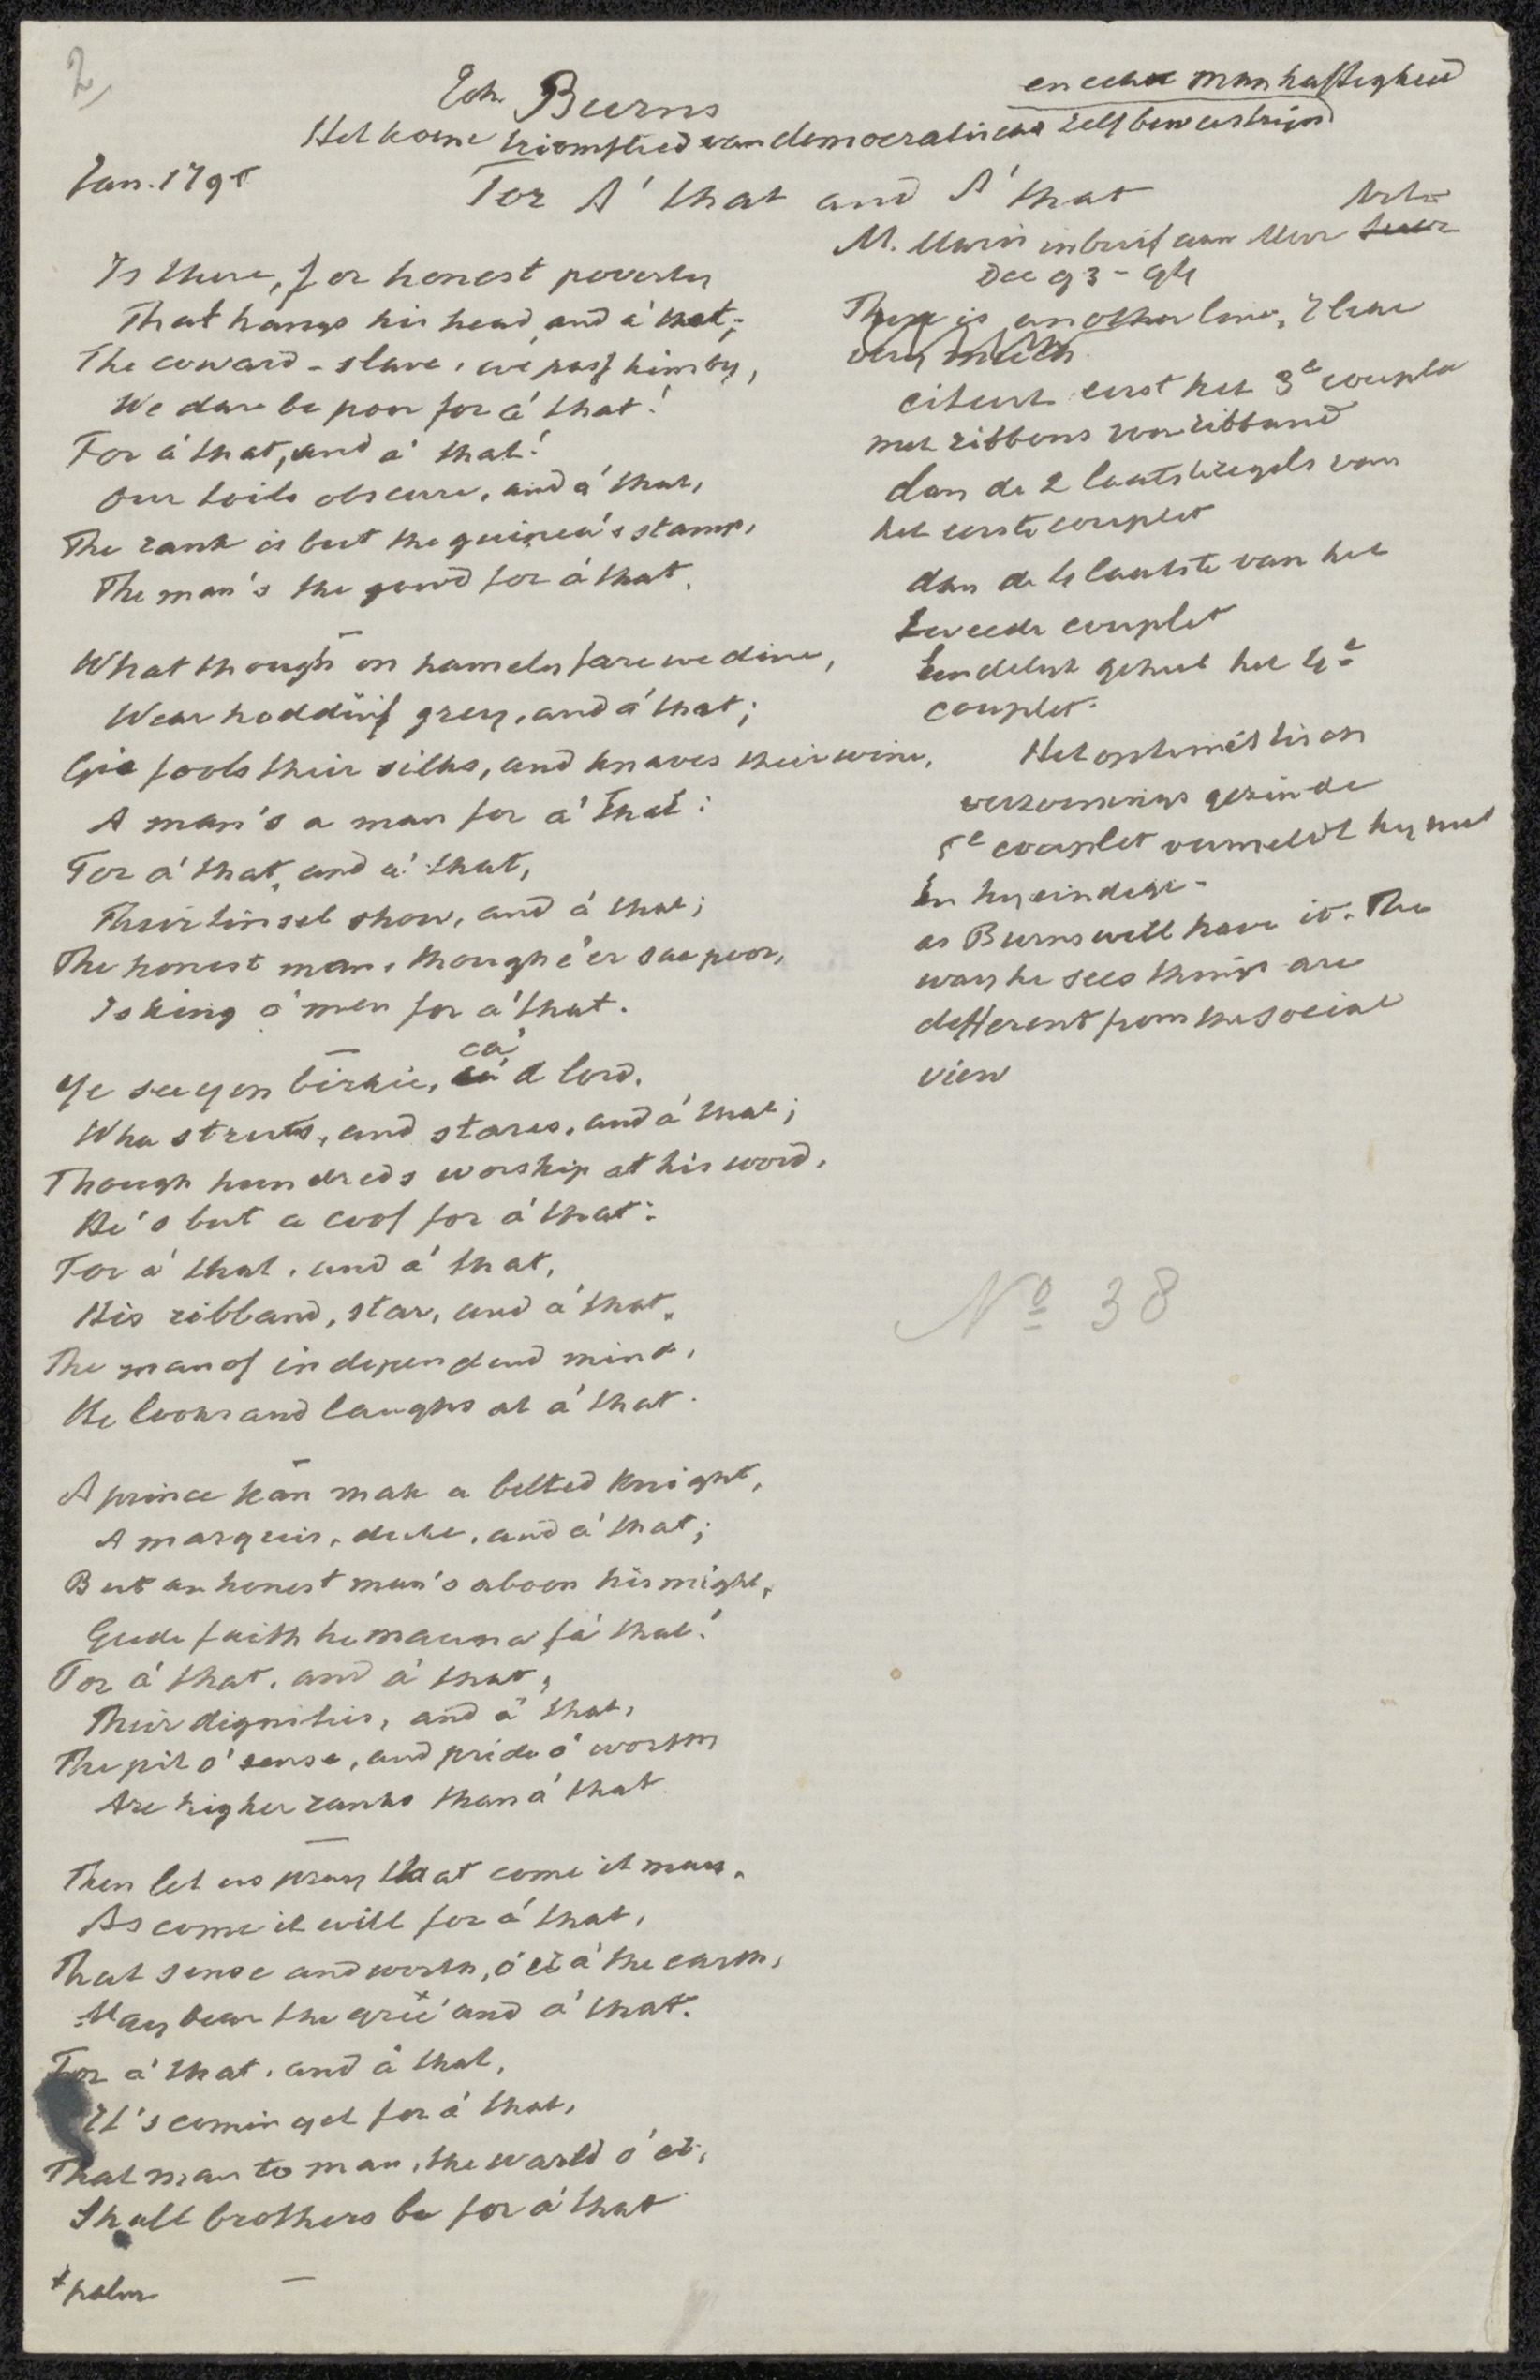 2
Burns
en echte manhaftigheid
Het koene triomflied van democratische zelfbewustzijn
Jan. 1795
For A' that and A' that
M. Maris in brief aan Mevr
Dec 93 - 94
Is there, for honest poverty
That hangs his head and a' that;
The coward-slave, we pass him by,
We dare be poor for a' that!
For a' that, and a' that!
Our toils obscure, and a' that,
The rank is but the guinea's stamp,
The man's the gowd for a' that.
What though on hamely fare we dine,
Wear hoddin grey, and a' that;
Gie fools their silks, and knaves their wine,
A man's a man for a' that:
For a' that, and a' that,
Their tinsel show, and a' that;
The honest man, though e'er sae poor,
Is king o' men for a' that.
ca'
Ye see yon birkie, d lord,
Wha struts, and stares, and a' that;
Though hundreds worship at his word,
He's but a coof for a' that:
For a' that, and a' that,
His ribband, star, and a' that,
The man of independend mind,
He looks and laughs at a' that.
A prince kan mak a belted knight,
A marquis, duke, and a' that;
But an honest man's aboon his might,
Gude faith he mauna fa' that!
For a' that, and a' that,
Their dignities, and a' that,
The pit o' sense, and pride o' worth
Are higher ranks than a' that
Then let us pray that come it may,
As come it will for a' that,
That sense and worth, o'er a' the earth,
May bear the gree* and a' that.
For a' that, and a' that,
It's comin yet for a' that,
That man to man, the warld o'er,
Shall brothers be for a' that
* palm
There is another line, I love
very much
citeert eerst het 3e couplet
met ribbons voor ribband
dan de 2 laatste regels van
het eerste couplet
dan de 4 laatste van het
tweede couplet
Eindelijk geheel het 4e
couplet.
Het optimistisch
verzoenings gezinde
5e couplet vermeldt hij niet
En hij eindigt -
as Burns will have it. The
way he sees things are
different from the social
view
No 38